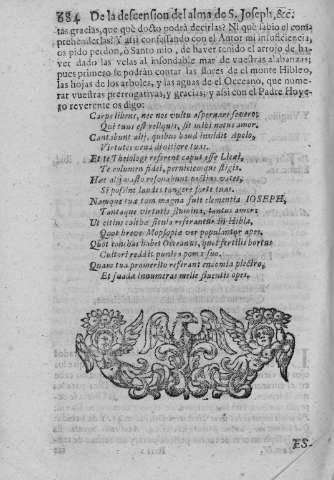 684 De la descension del alma de S. Joseph, &c.
tas gracias, que què docto podrà decirlas? Ni què sabio el com
prehenderlas? Y assi consultando con el Autor mi insuficiencia,
os pido perdon, ò Santo mio, de haver tenido el arrojo de ha-
ver dado las velas al insondable mar de vuestras alabanzas;
pues primero se podràn contar las flores de el monte Hibleo,
las hojas de los arboles, y las aguas de el Occeano, que nume-
rar vuestras prerrogativas, y gracias; y assi con el Padre Hoye-
ro reverente os digo:
Carpe libens, nec nos vultu aspernare severo;
Qui tuus est velis, sit mihi notus amor.
Cantabunt alij, quibus haud invidit Apolo,
Virtutes vena divitiore tuas.
Et te Theiologi referent caput esse
Te columen fidei, perniciemque stigis.
Hac alij maesto resonabunt
Si possint laudes tangere forte tuas.
Namque tua tam magna fuit clementia IOSEPH,
Tantaque virtutis flumina, tantus amor:
Ut citius caltha sicula referantur in Hibla,
Quot breve Mopsopia ver populantur apes.
Quot conchas habet Oceanus, quot fertilis hortus
Cultori reddit punica poma suo.
Quam tua promerito referant encomia plectro,
Et suada innumeras melle fluentis opes.
ES-